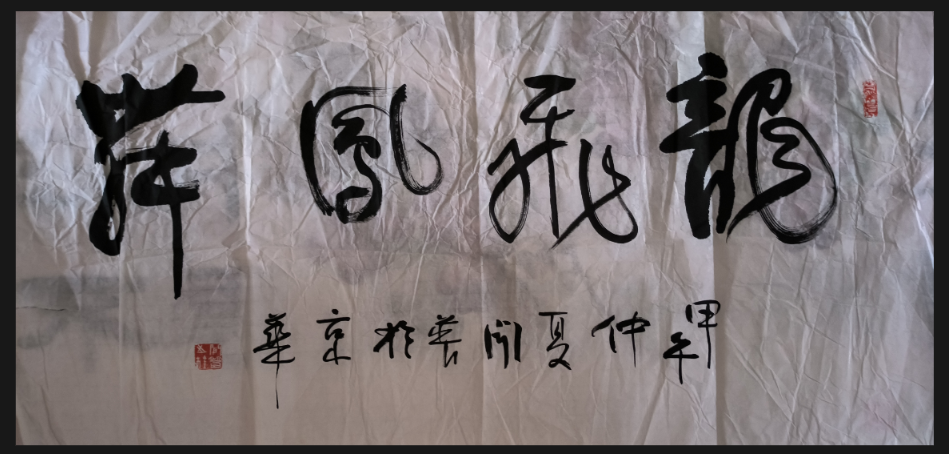 龍飛鳳舞
甲午仲夏開藝於京華